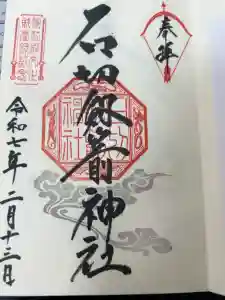 奉拝
石切劔箭神社
令和七年二月十三日